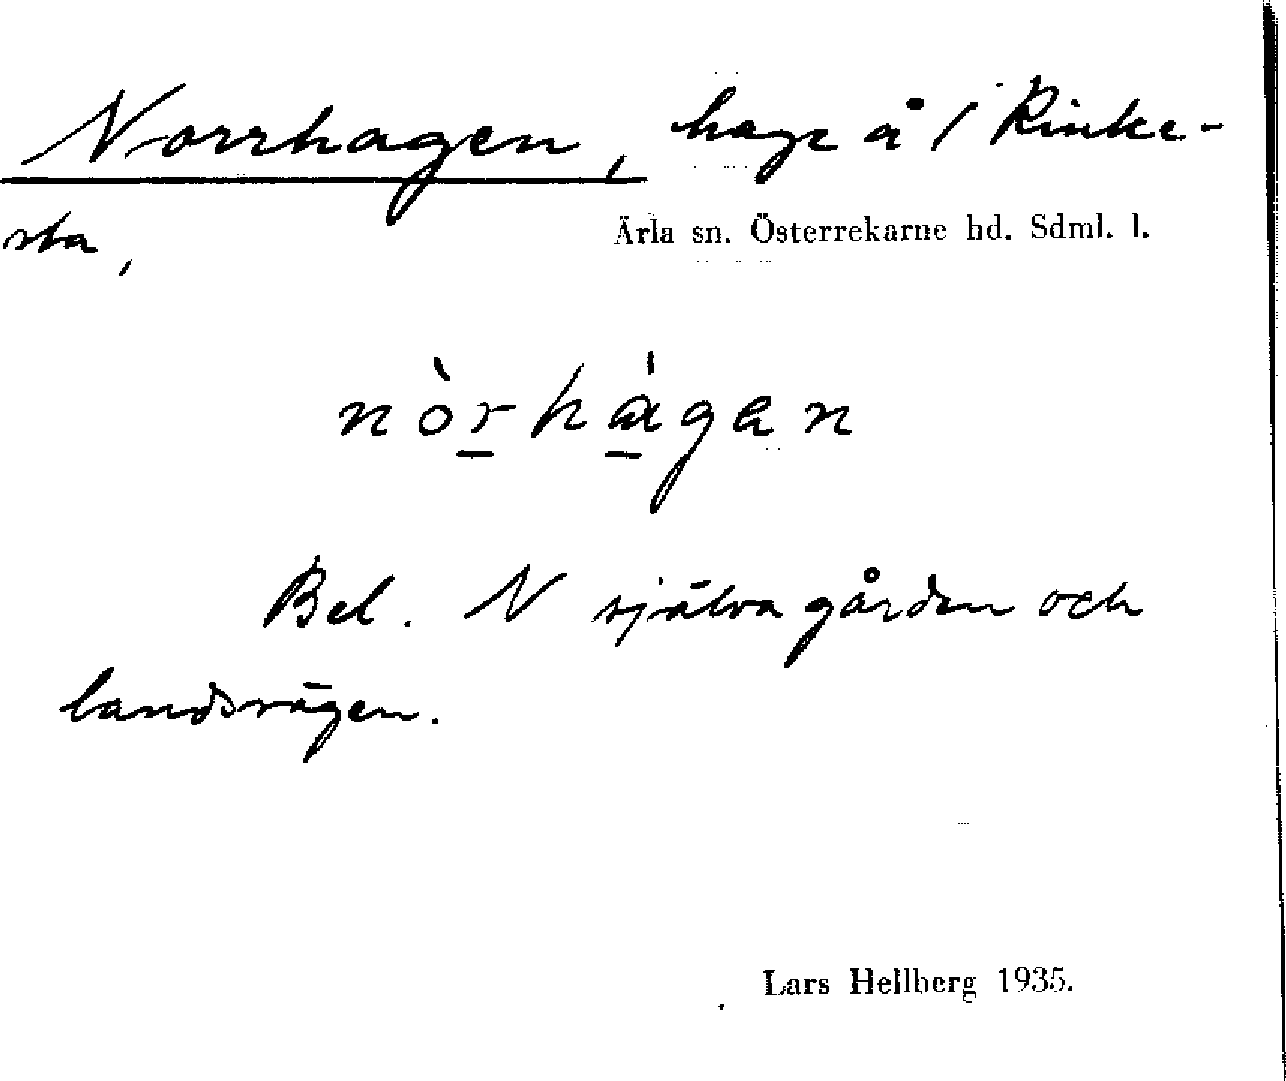 Norrhagen, hage å / Rinke-
sta,
Ärla sn. Österrekarne hd. Sdml. l.
nòr̲há̲gan
Bel. N själva gården och
landsvägen.
Lars Hellberg 1935.